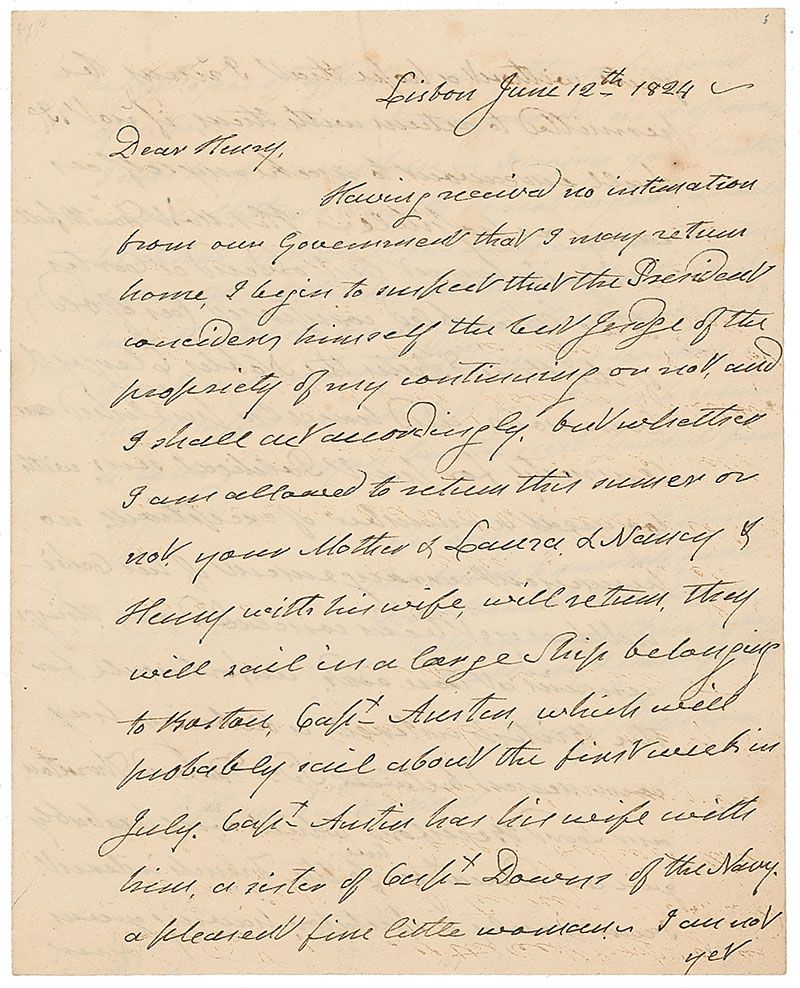 Lisbon June 12th 1824
Dear Henry,
Having received no intimation
from our Government that I may return
home, I begin to suspect that the President
conciders himself the best Judge of the
propriety of my continuing or not, and
I shall act accordingly. but whether
I am allowed to return this summer or
not, your Mother & Laura, & Nancy &
Henry with his wife, will return, they
will sail in a large Ship belonging
to Boston, Capt Austin, which will
probably sail about the first week in
July. Capt Austin has his wife with
him, a sister of Capt Downs of the Navy.
a pleasent fine little woman. I am not
yet